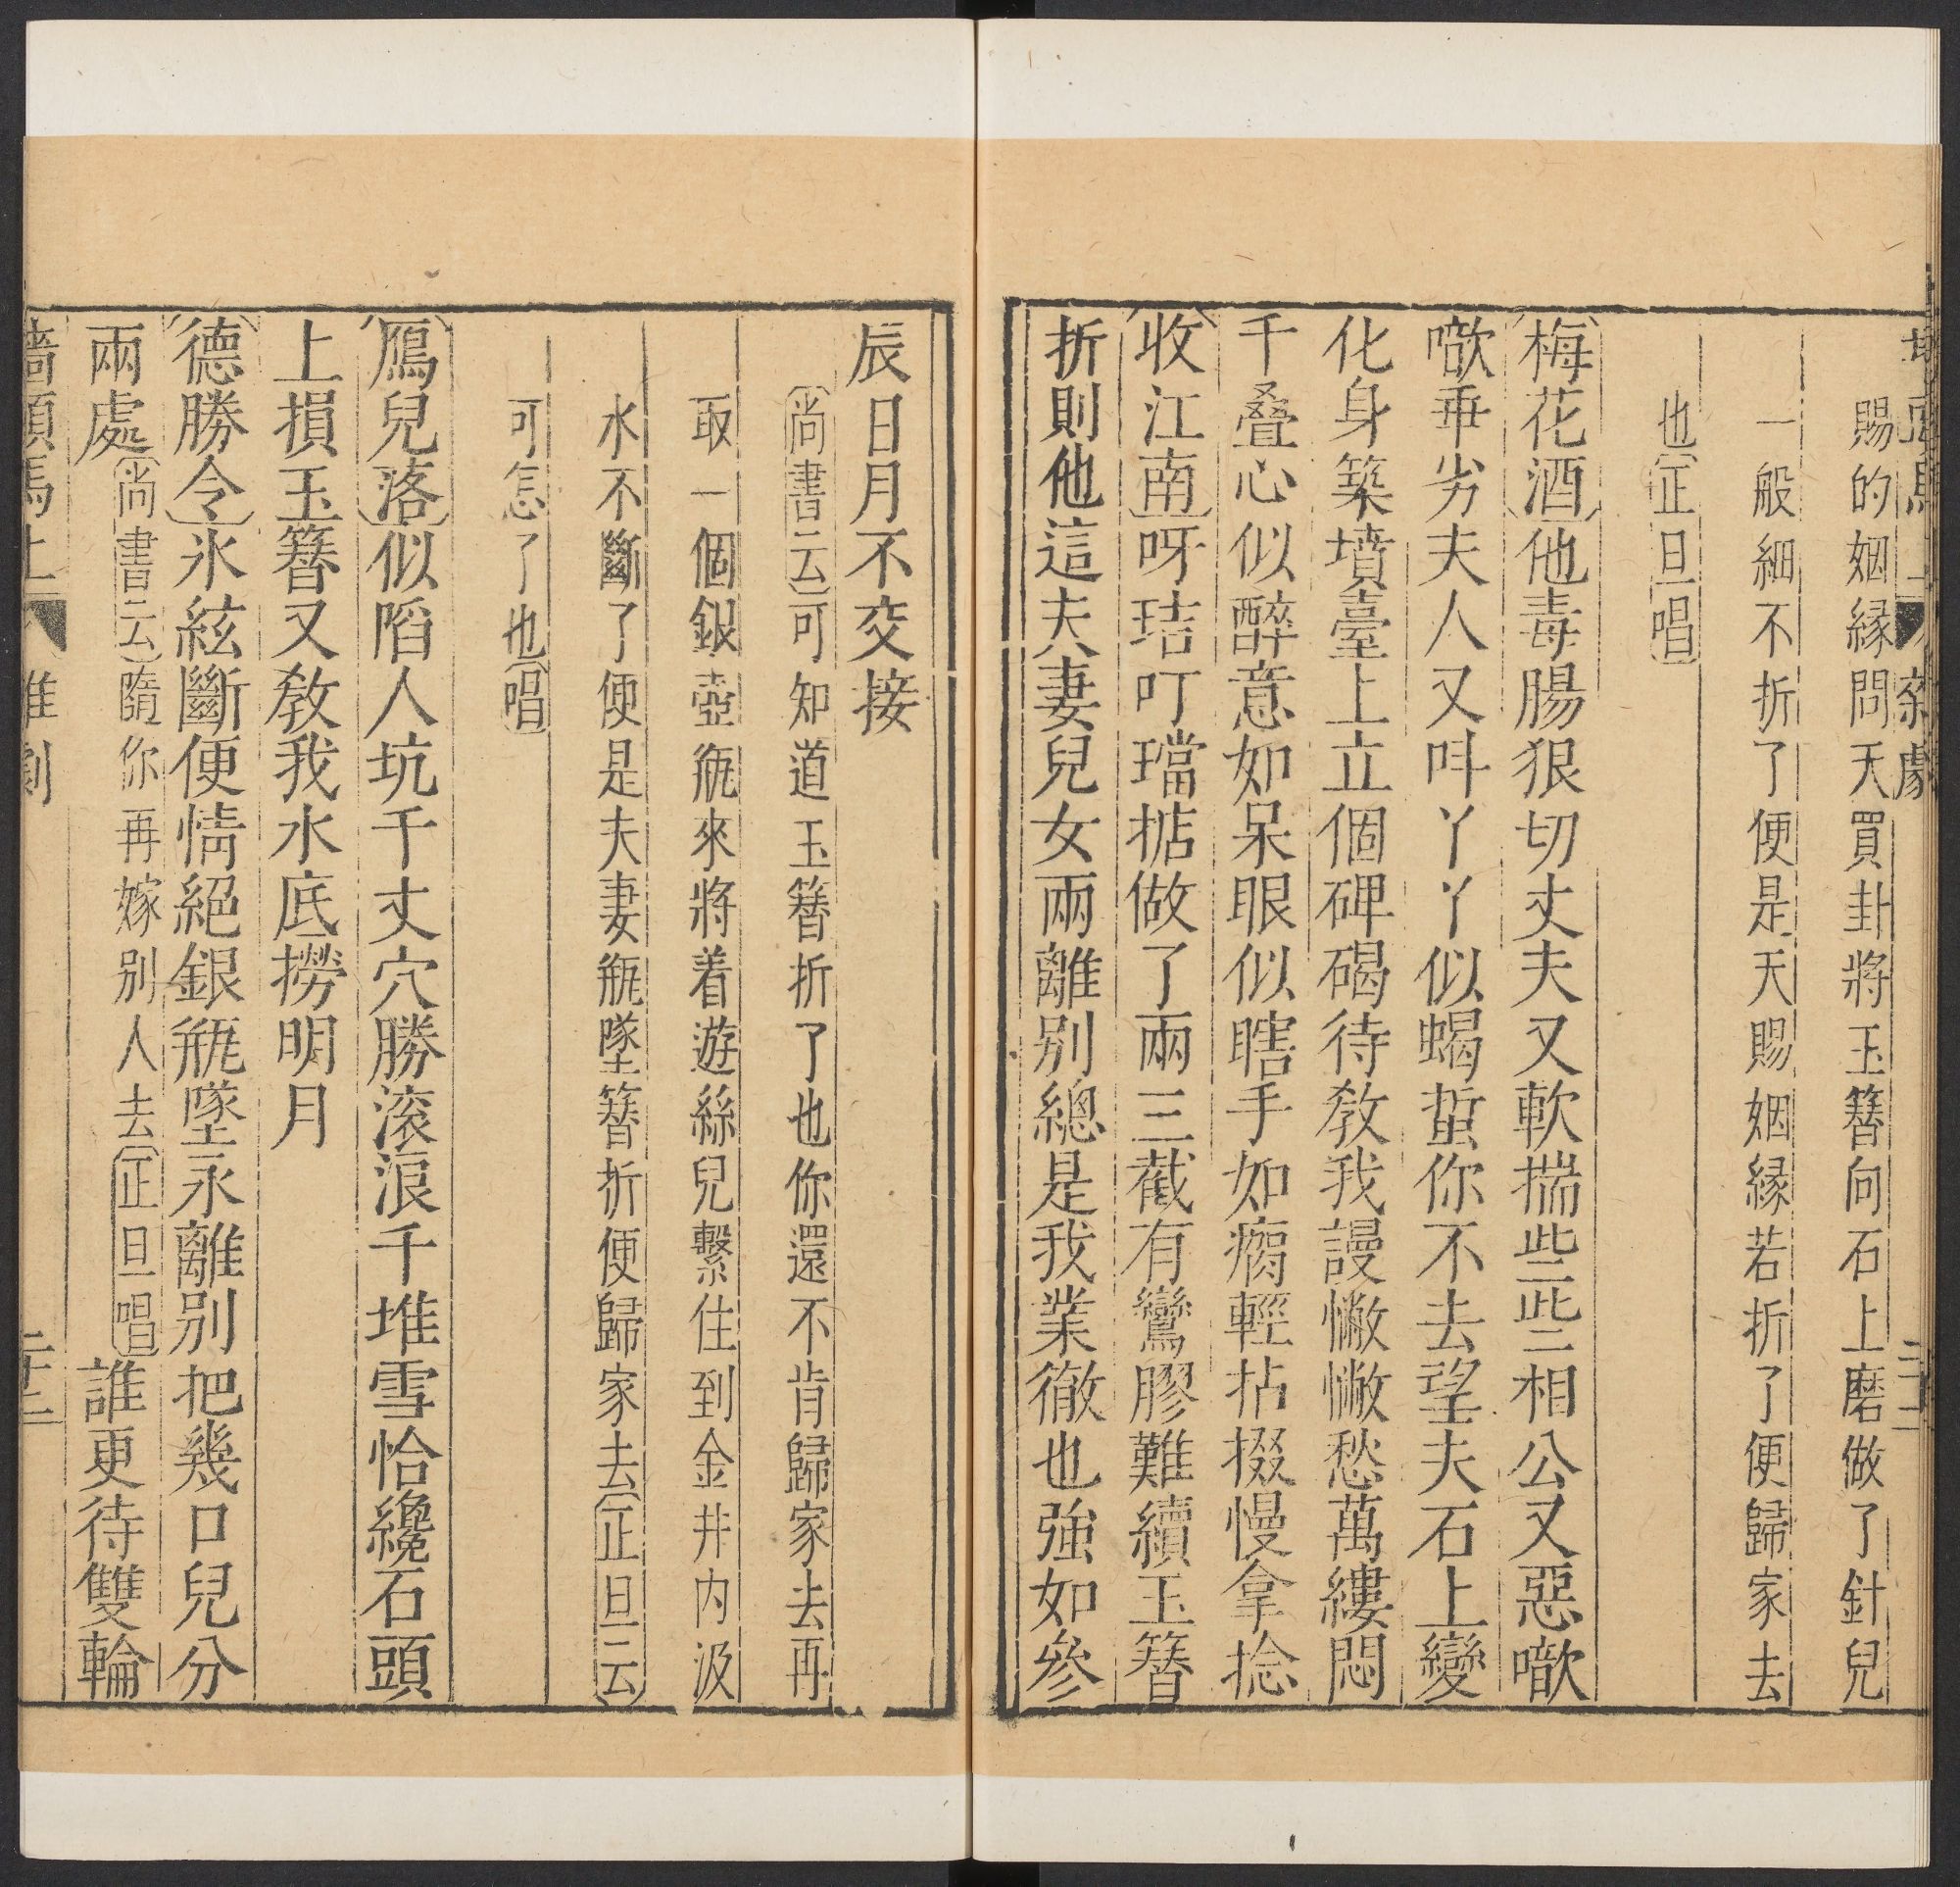 賜的姻緣問天買卦將玉簪向石上磨做了針兒
一般細不折了便是天賜姻緣若折了便歸家去
也(正旦唱)
(梅花酒)他毒腸狠切丈夫又軟揣些些相公又惡噷
噷乖劣夫人又叫丫丫似蝎蜇你不去望夫石上變
化身築墳臺上立個碑碣待教我謾懒懒愁萬縷悶
千叠心似醉意如呆眼似瞎手如瘸輕拈掇慢拿捻
(收江南)呀玷叮璫掂做了兩三截有鸞膠難續玉簪
折則他這夫妻兒女兩離別總是我業徹也強如參
辰日月不交接
(尚書云)可知道玉簪折了也你還不肯歸家去再
取一個銀壺瓶來將着遊絲兒繫住到金井内汲
水不斷了便是夫妻瓶墜簪折便歸家去(正旦云)
可怎了也(唱)
(鴈兒落)似陷人坑千丈穴勝滾浪千堆雪恰纔石頭
上損玉簪又教我水底撈明月
(德勝令)氷絃斷便情絕銀瓶墜永離別把幾口兒分
兩處(尚書云)隨你再嫁别人去(正旦唱)誰更待雙輪
墻頭馬上 雜劇 二十二